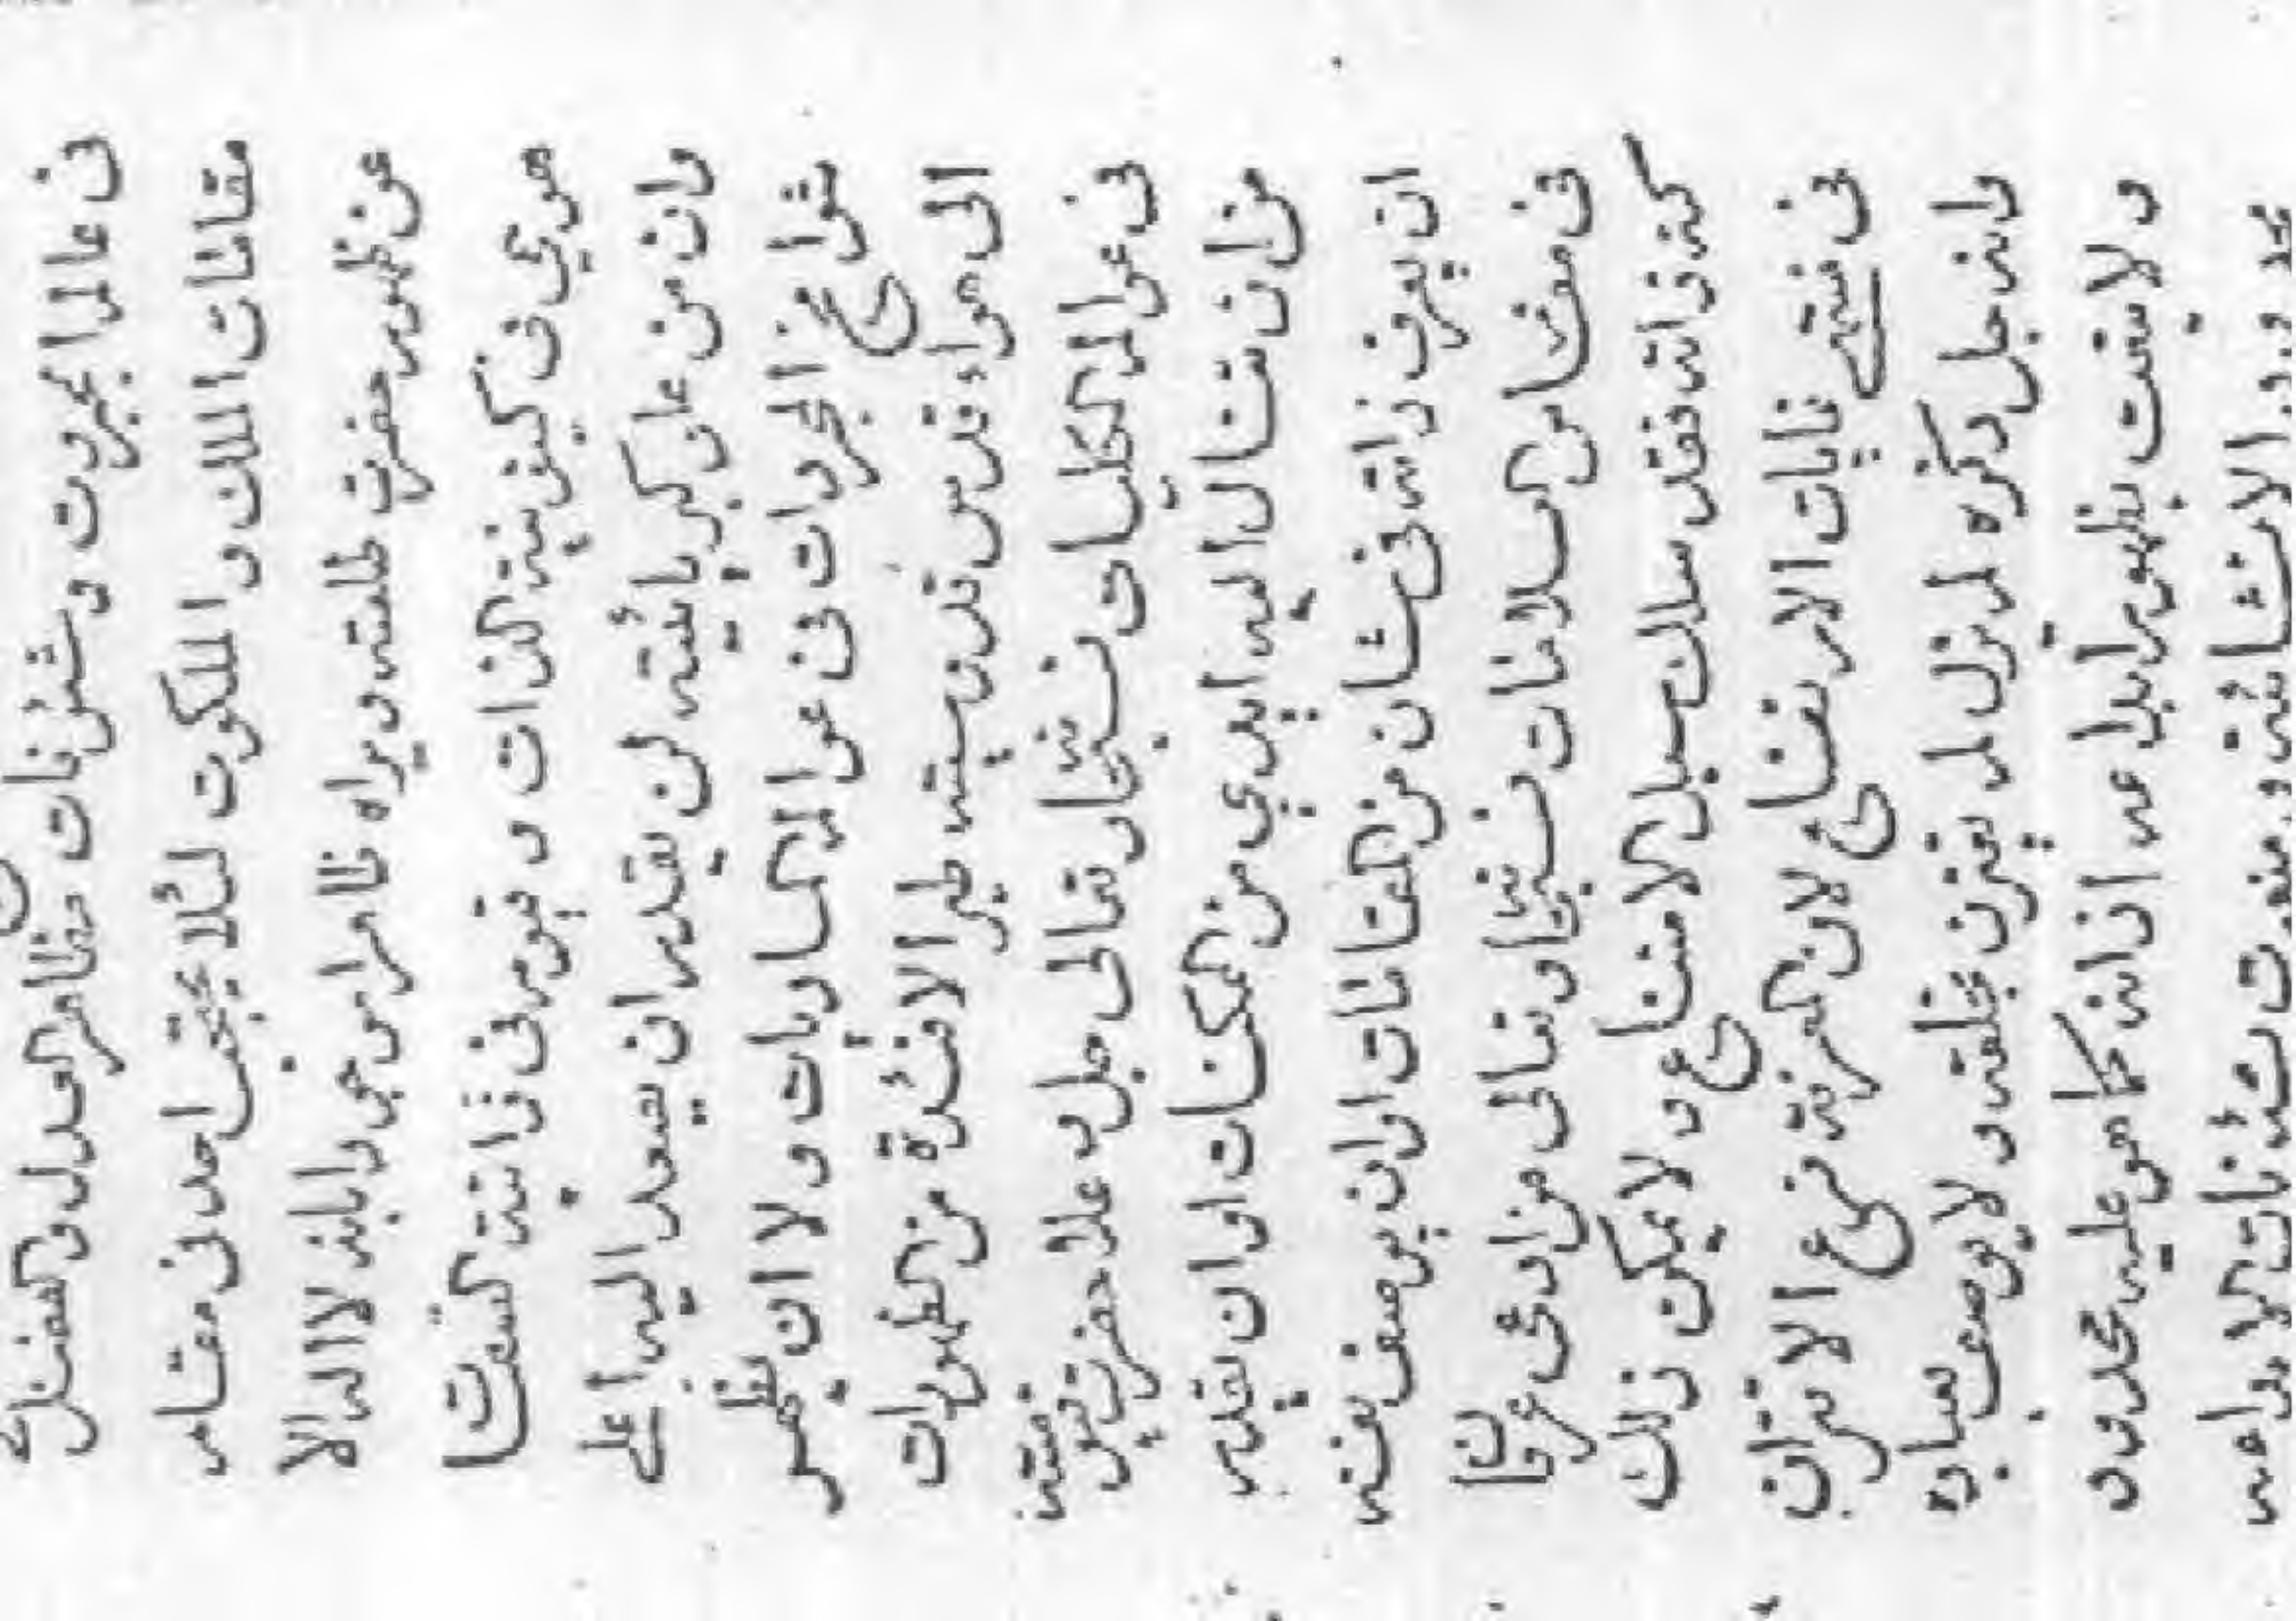 في عالم الجبروت و شئونات مظاهر العدل و الفضل
مقامات الملك و الملكوت لئلا يحتجب احد في مقام
عن ظهور حضرت طلعته و يراه ظاهرا موجودا بانه لا اله الا
هو حي في كينونية الذات و قيوم في ذاتية الصفات
و ان من علو كبريائيته لن يقدر ان يصعد اليه اعلى
شوامخ المجردات في عوالم الماديات و لا ان
الى هواء قدس قدوسيته طير الافئدة من الظهورات
في عوالم الكليات فسبحانه و تعالى جل و علا حضرت قيوميته
من ان تنال اليه ايدي من الممكنات او ان يقدر
ان يعرف ذاته في شان من المقامات او ان يوصف بصفته
في مقام العلامات فسبحانه و تعالى من ادعى عرفان
كنه ذاته فقد سلك سبل الامتناع و لا يمكن ذلك
في منتهى غايات الامر لان المعرفة فرع الاقتران
و انه جل ذكره لم يزل لم يقترن بخلقه و لا يوصف بعباده
و لا ينعت بظهور ابداعه اذ انه كما هو عليه محدود
بحدود الانشائية و منعوت بشئونات الابداعية